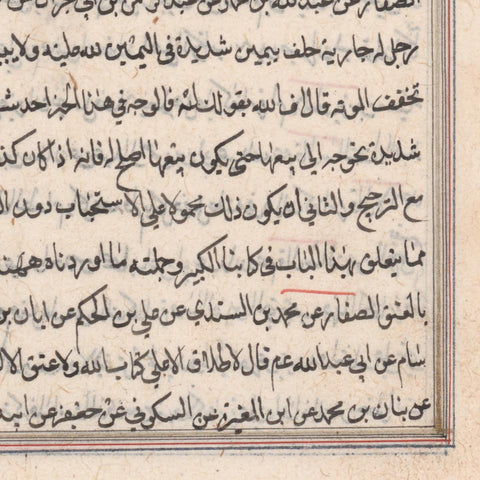 الصفار عن عبد الله بن محمد عن
رجل له جارية حلف بيمين شديدة في اليمين لله عليه ولا يبيعها
تخفف المونة قال ف لله بقولك له فالوجه في هذا الخبر احد شيئين
شديدة يحوجه الى بيعها حتى يكون بيعها اصلح له فانه اذا كان كذلك
مع الترجيح والثاني ان يكون ذلك محمولا على الاستحباب دون
مما يتعلق بهذا الباب في كتابنا الكبير وجملته ما اوردناه ههنا
بالعتق الصفار عن محمد بن السندي عن علي بن الحكم عن ابان بن
شام عن ابي عبد الله عم قال لا طلاق الا على كتاب الله ولا عتق الا
عن بنان بن محمد عن ابن المغيرة عن السكوني عن جعفر عن ابيه